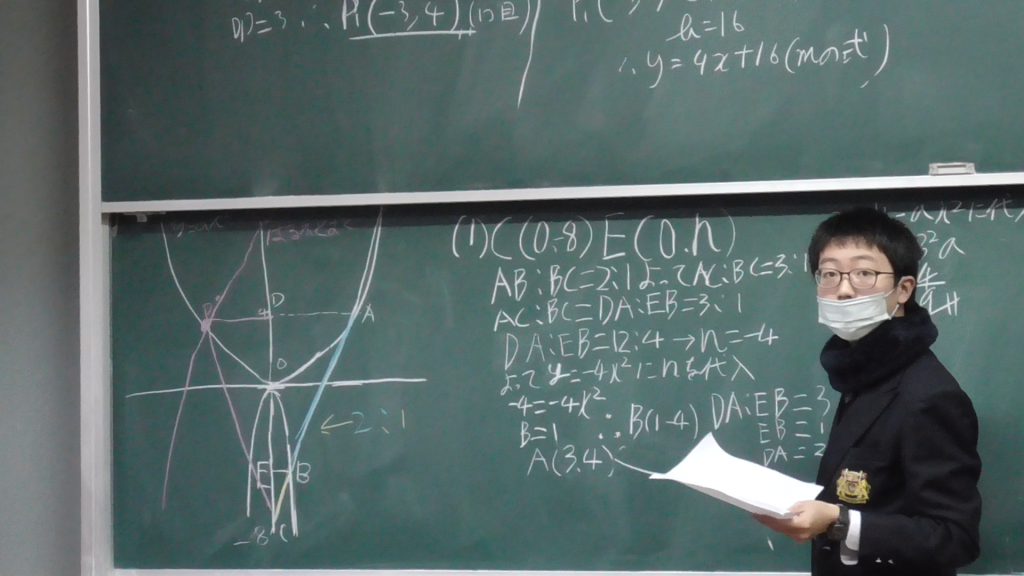 ∴ P₁(-3,4)(1つ目)
h=16
∴ y=4x+16(mの式)
(1) C(0,-8) E(0.n)
AB:BC=2:1よってAC:BC=3:1
AC:BC=DA:EB=3:1
DA:EB=12:4→n=-4
よってy=-4x²にnを代入
-4=-4x²
B=1 ∴B(1-4)
A(3,4)
DA:EB=3
EB=1
DA=
ax²に代入
3²a
D
A
O
←2:1
E
B
-8
C